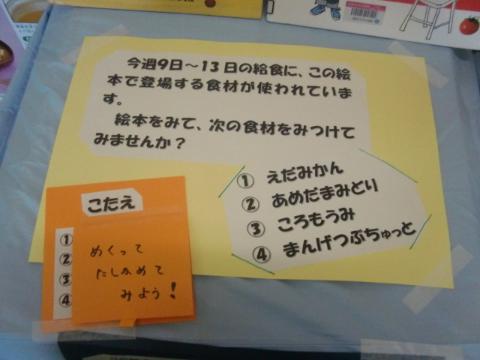 今週9日～13日の給食に、この絵
本で登場する食材が使われていま
す。
絵本をみて、次の食材をみつけて
みませんか？
① えだみかん
② あめだまみどり
③ ころもうみ
④ まんげつぶちゅっと
こたえ
①
②
③
④
めくって
たしかめて
みよう！